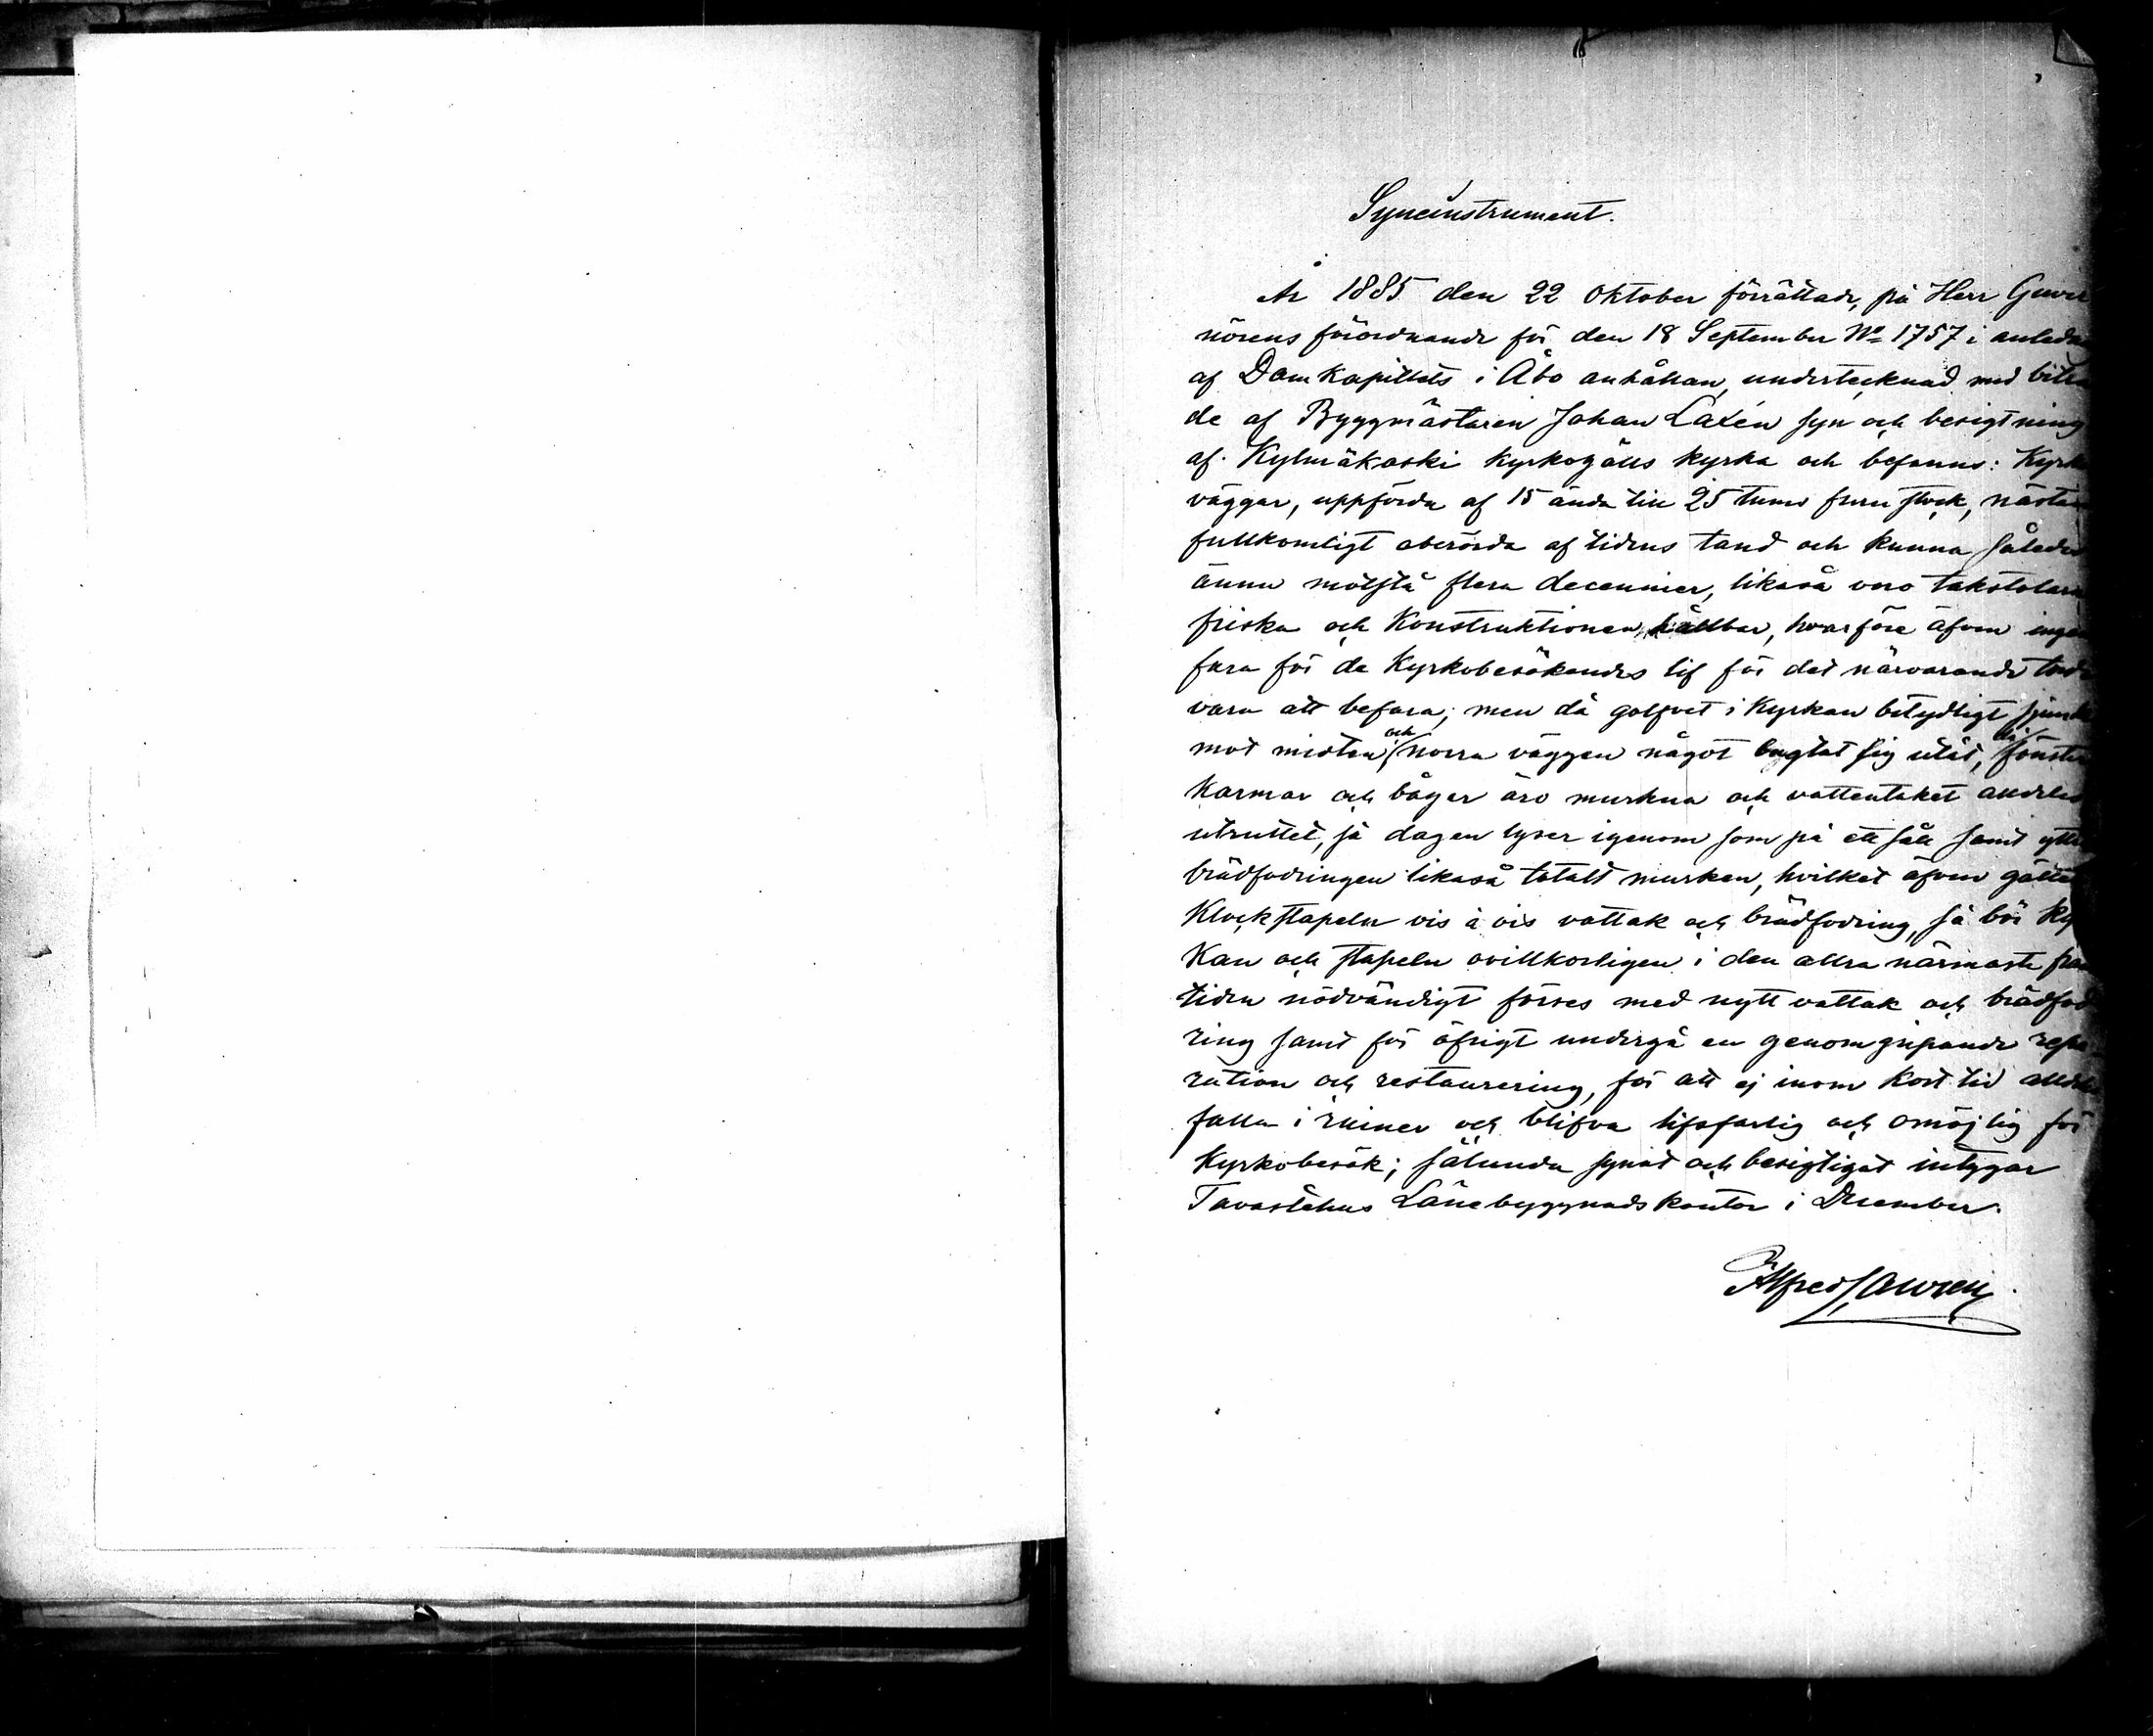 Syneinstrument.
År 1885 den 22 Oktober förrättade, på Herr Guver
nörens förordnande för den 18 September No 1757 i anledn
af Domkapitlets i Åbo anhållan, undertecknad med biträ
de af Byggmästaren Johan Laxén syn och besigtning
af Kylmäkoski kyrkogälls kyrka och befanns: Kyrk
väggar, uppförda af 15 ända till 25 tums furu stock, nästan
fullkomligt oberörda af tidens tand och kunna således
ännu motstå flera decennier, likaså voro takstolarn
friska och Konstruktionen hållbar, hvarföre äfven ingen
fara för de Kyrkobesökandes lif för det närvarande torde
vara att befara; men då golfvet i Kyrkan betydligt sjunk
mot midten, och norra väggen något bugtat sig utåt, fönster
Karmar och bågar äro murkna och vattentaket alldeles
utruttet, så dagen lyser igenom som på ett såll samt yttre
brädfodringen likaså totalt murken, hvilket äfven gäller
Klockstapeln vis à vis vattak och brädfodring, så bör Kyr
Kan och stapeln ovillkorligen i den allra närmaste fram
tiden nödvändigt förses med nytt vattak och brädfod
ring samt för öfrigt undergå en genomgripande repa-
ration och restaurering, för att ej inom Kort tid alldeles
falla i ruiner och blifva lifsfarlig och omöjlig för
Kyrkobesök; sålunda synat och besigtigat intygar
Tavastehus Länebyggnadskontor i December.
Alfred